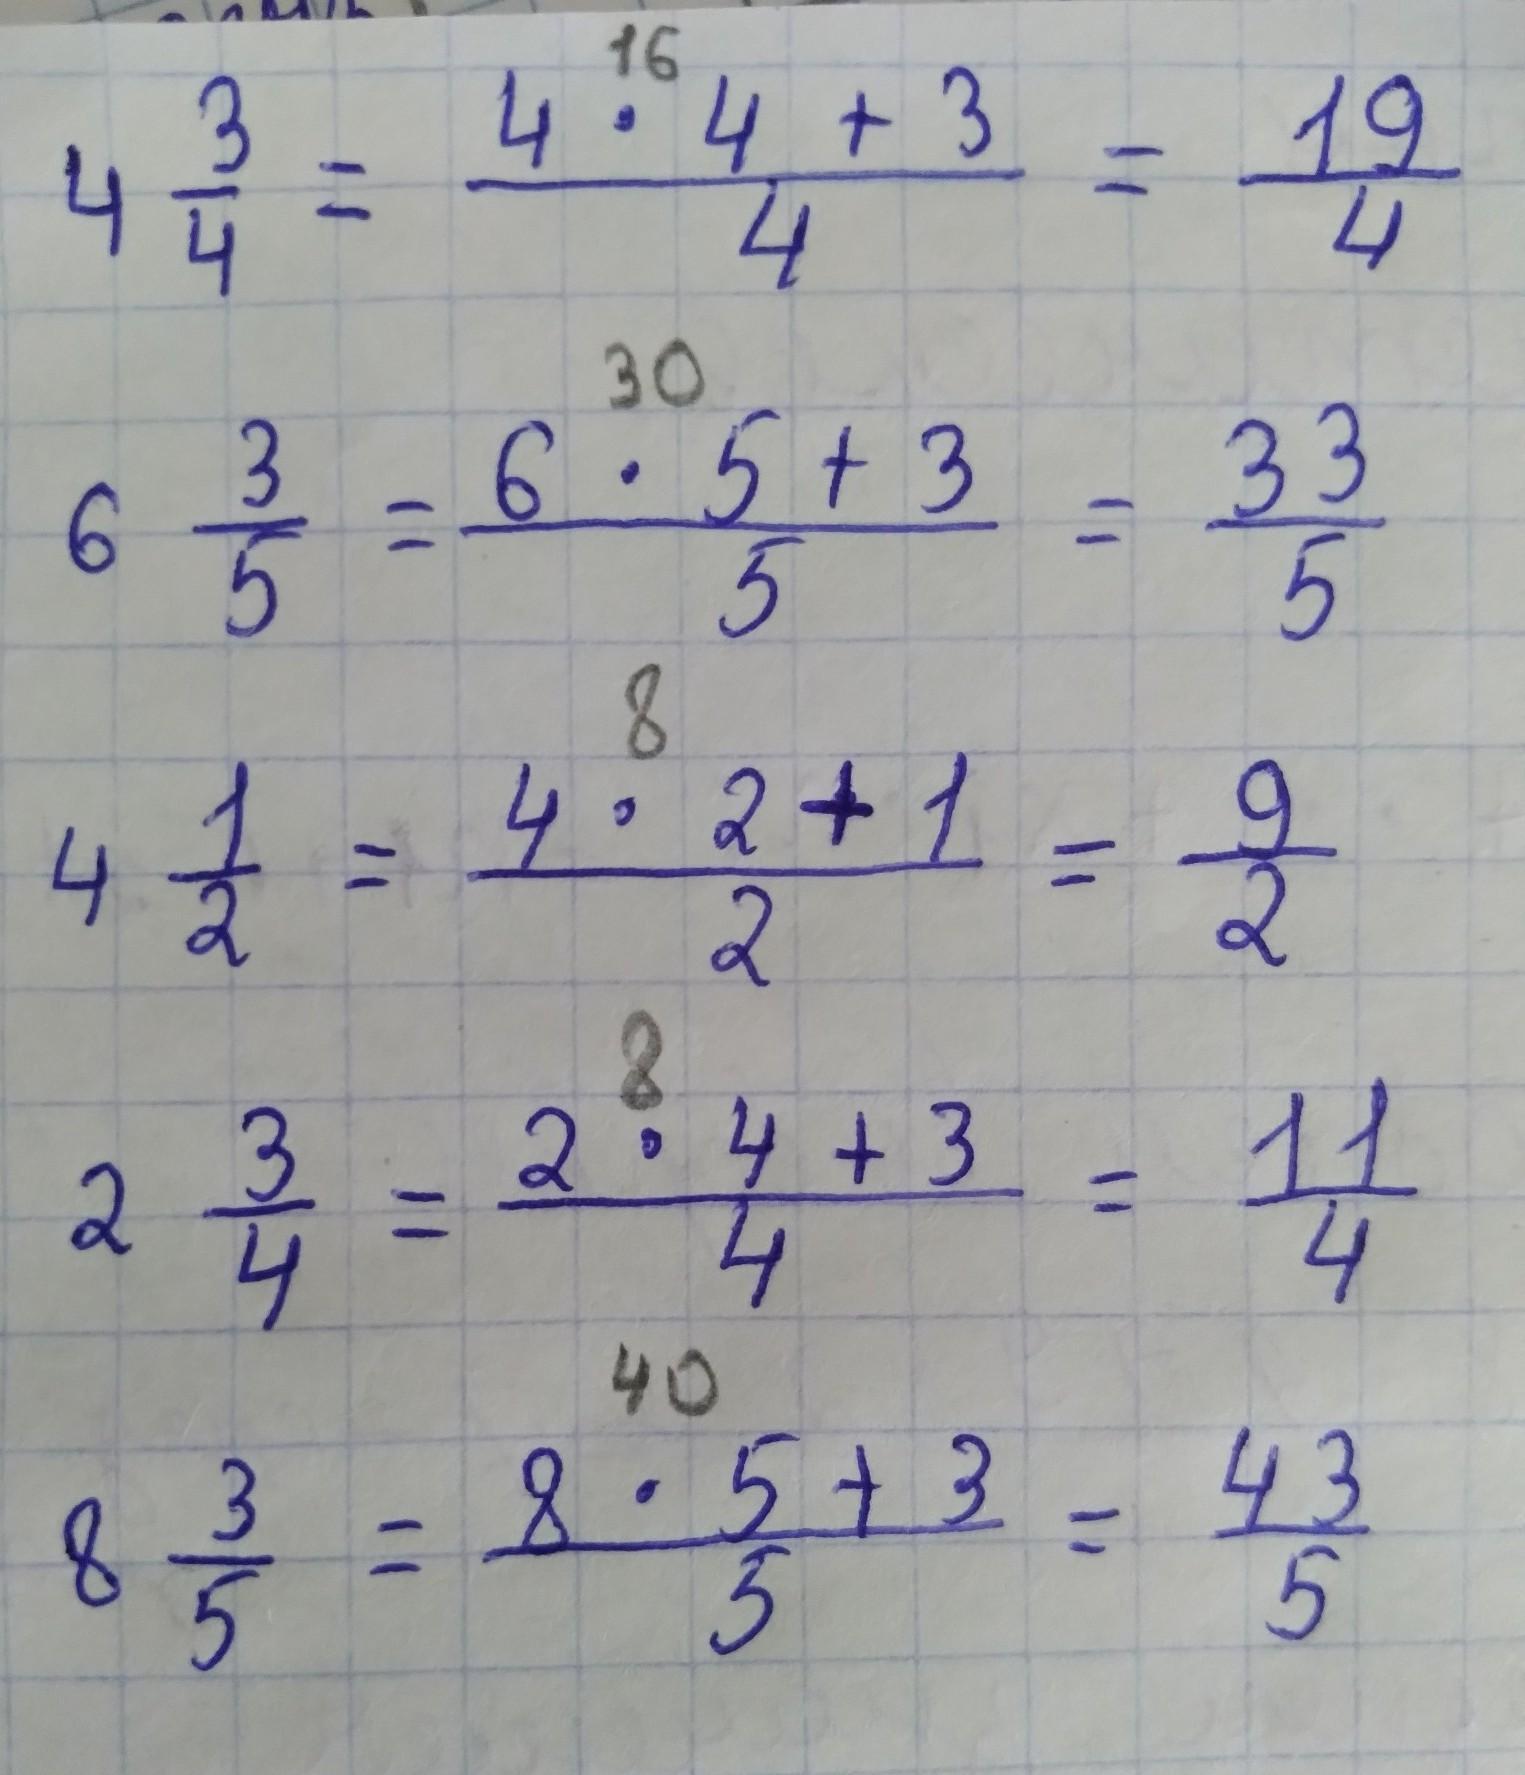 16
4 3/4 = (4 · 4 + 3)/4 = 19/4
30
6 3/5 = (6 · 5 + 3)/5 = 33/5
8
4 1/2 = (4 · 2 + 1)/2 = 9/2
8
2 3/4 = (2 · 4 + 3)/4 = 11/4
40
8 3/5 = (8 · 5 + 3)/5 = 43/5